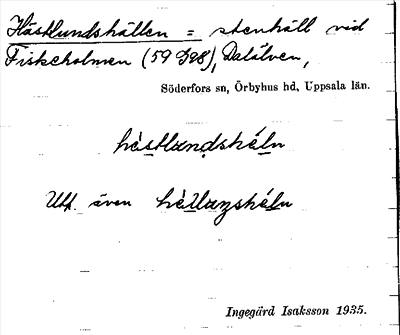 Hästlundshällen = stenhäll vid
Fiskeholmen (59 398), Dalälven,
Söderfors sn, Örbyhus hd, Uppsala län.
hèstlundshéln
Utt. även hèllanshéln
Ingegärd Isaksson 1935.